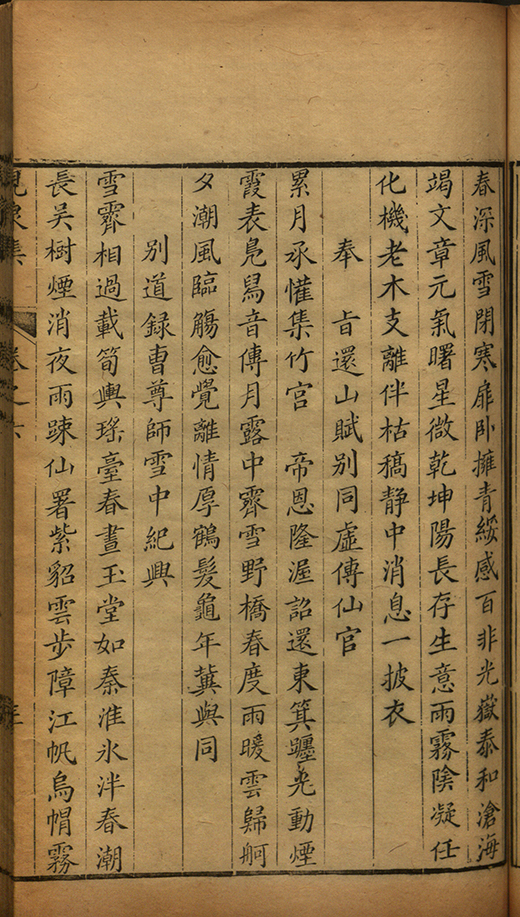 春深風雪閉寒扉卧擁青綏感百非光嶽泰和滄海
竭文章元氣曙星微乾坤陽長存生意雨霧陰凝任
化機老木支離伴枯稿静中消息一披衣
奉　旨還山賦別同虛傳仙官
累月承懽集竹宮　帝恩隆渥詔還東箕躔光動煙
霞表鳧舄音傳月露中霽雪野橋春度雨暖雲歸舸
夕潮風臨觴愈覺離情厚鶴髮龜年冀與同
別道録曹尊師雪中紀興
雪霽相過載筍輿瑤臺春晝玉堂如秦淮氷泮春潮
長吴樹煙消夜雨踈仙署紫貂雲步障江帆烏帽霧
峴泉集　卷之六